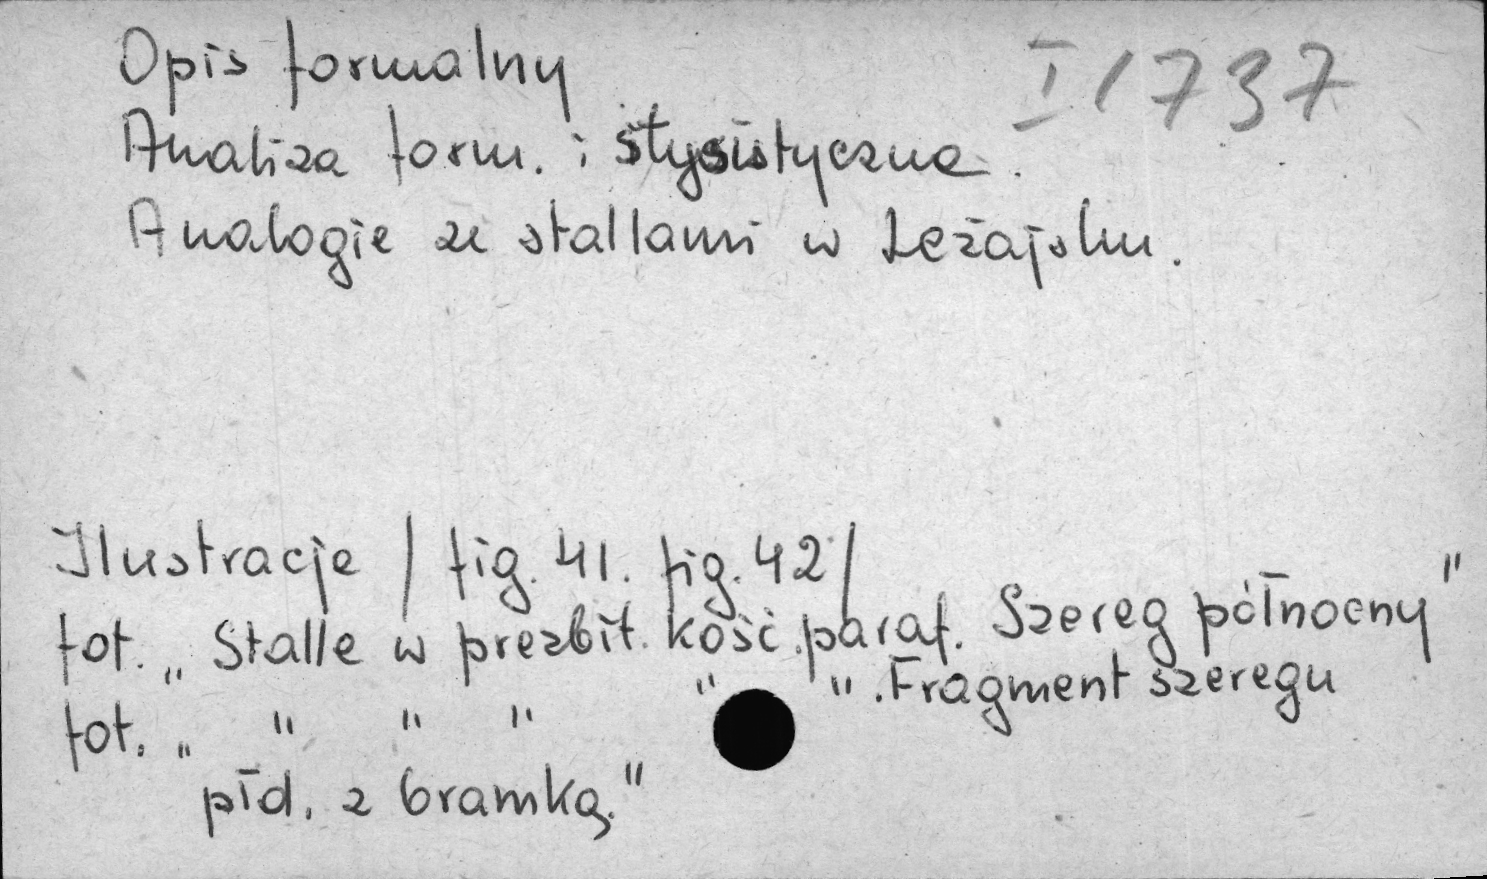 Opis formalny
I/737
Analiza form. i stylistyczna.
Analogie ze stallami w Leżajsku.
Ilustracje / fig. 41. fig. 42/
fot. „Stalle w prezbit. kość. paraf. Szereg północny"
fot. „ " " " " " . Fragment szeregu
płd. z bramką."